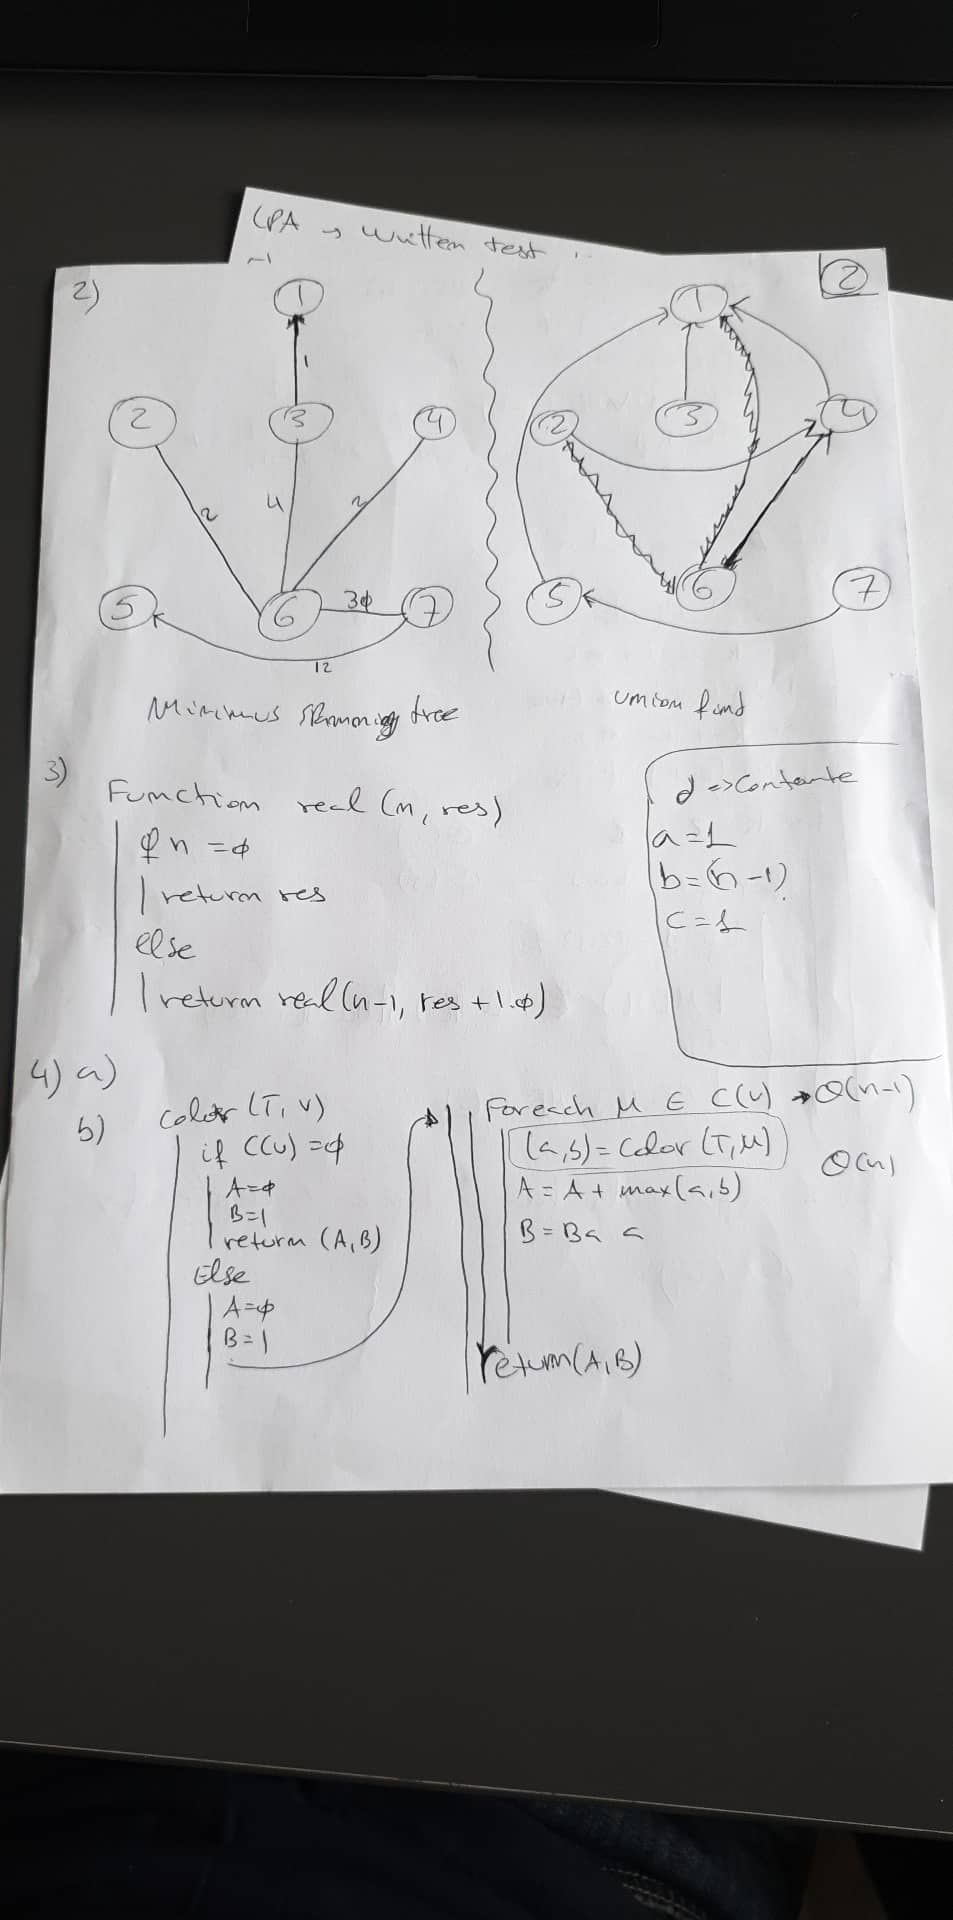 CPA → written test
2)
2
1
1
2
3
4
2
4
2
5
6
3ϕ
7
12
Minimus spanning tree
1
2
3
4
5
6
7
union find
3)
Function real (n, res)
if n = ϕ
return res
else
return real (n-1, res + 1.ϕ)
d => Contante
a = 1
b = (n-1)
c = 1
4) a)
b)
color (T, v)
if C(v) = ϕ
A = ϕ
B = 1
return (A, B)
Else
A = ϕ
B = 1
Foreach μ ∈ C(v) → O(n-1)
(a, b) = Color (T, μ)
O(n)
A = A + max(a, b)
B = B a
return (A, B)